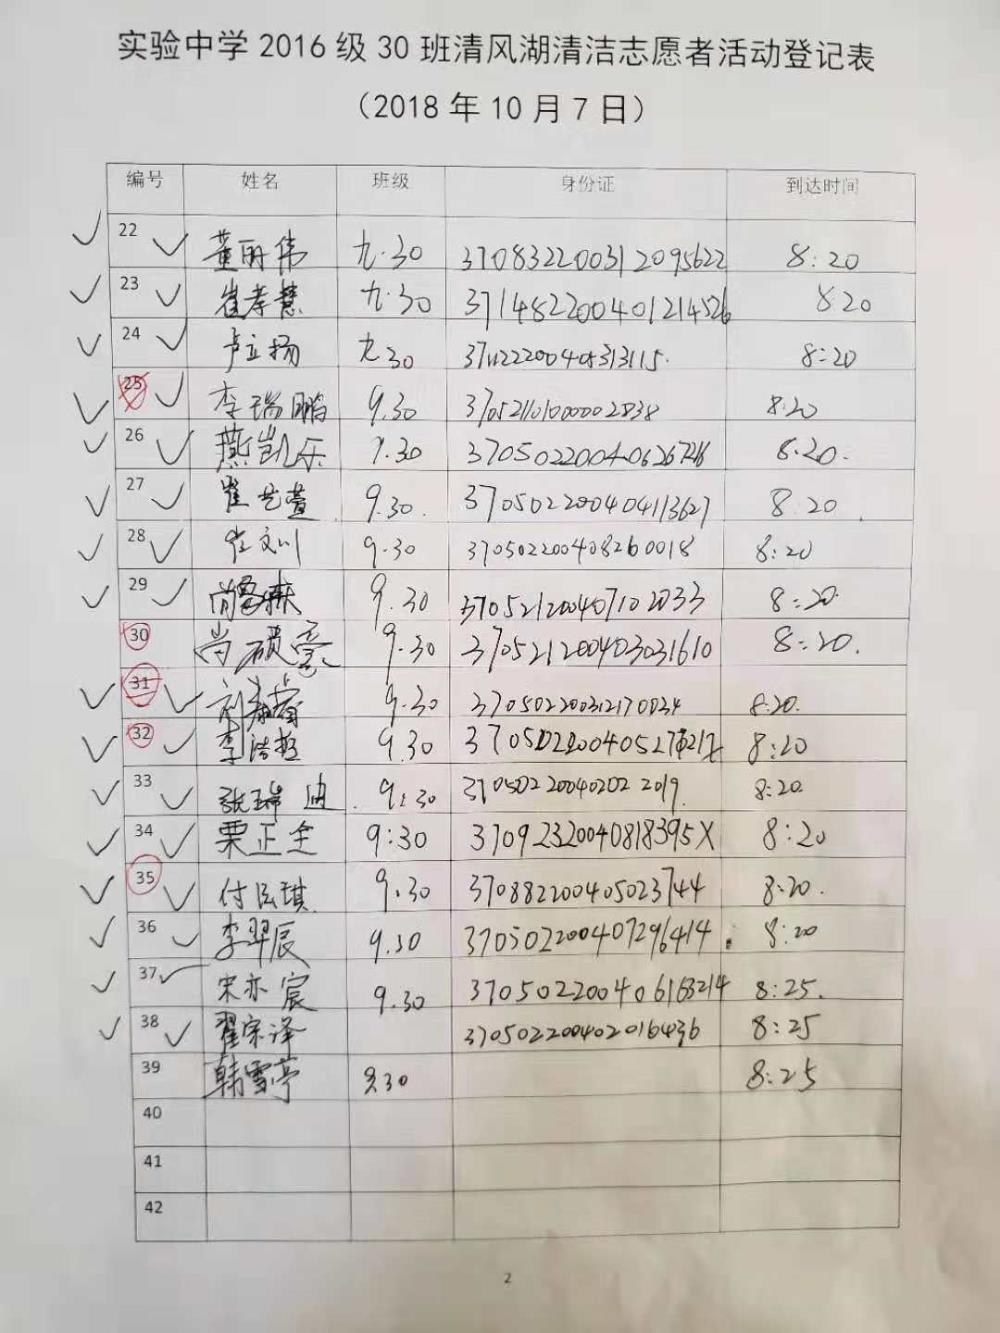 实验中学2016级30班清风湖清洁志愿者活动登记表
（2018年10月7日）
编号 姓名 班级 身份证 到达时间
22 董雨伟 九.30 370832200312095622 8:20
23 崔孝慧 九.30 371482200401214526 8:20
24 卢立扬 九.30 8:20
25 李瑞鹏 9.30 8:20
26 燕凯乐 9.30 8:20.
27 崔艺萱 9.30. 370502200404113627 8:20
28 9.30 370502200408260018 8:20
29 9.30 370521200407102033 8:20
30 尚硕豪 9.30 370521200403031610 8:20.
31 9.30 370502200312170034 8:20.
32 李浩 9.30 8:20
33 张瑞迪 9:30 370502200402022019 8:20
34 栗正全 9:30 37092320040818395X 8:20
35 付泓琪 9.30 370882200405023744 8:20.
36 李翠辰 9.30 370502200407296414 8:20
37 宋亦宸 9.30 8:25.
38 翟宗泽 370502200402016436 8:25
39 韩雪亭 9.30 8:25
40
41
42
2